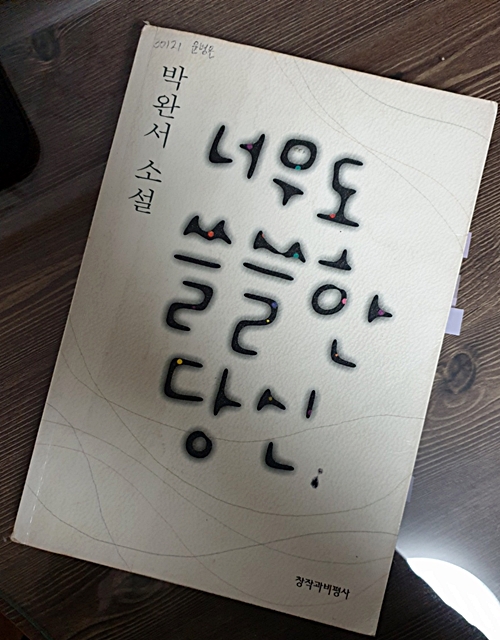 박완서 소설
너무도
쓸쓸한
당신
창작과비평사